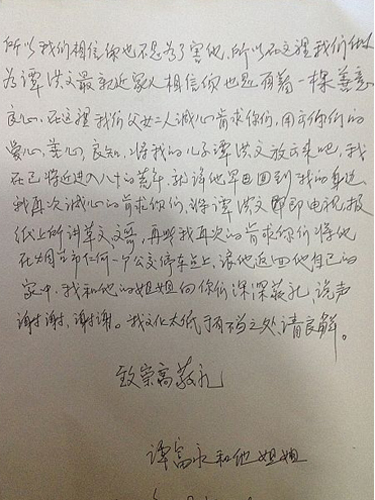 所以我们相信你也不是为了害他,所以在这里我们做
为谭洪文最亲近家人相信你也是有着一棵善意
良心,在这里我们父女二人诚心肯求你们,用齐你们的
爱心,善心,良知,将我的儿子谭洪文放出来吧,我
在已将近进入八十的荒年,让他早日回到我的身边,
我再次诚心的肯求你们,将谭洪文即即电视,报
纸上所讲草文文,再些我再次的肯求你们将他
在烟台市任何一个公交停车点上,让他返回他自己的
家中,我和他的姐姐向你们深深敬礼,说声
谢谢,谢谢。我文化太低于有不当之处,请良解。
致崇高敬礼
谭富永和他姐姐